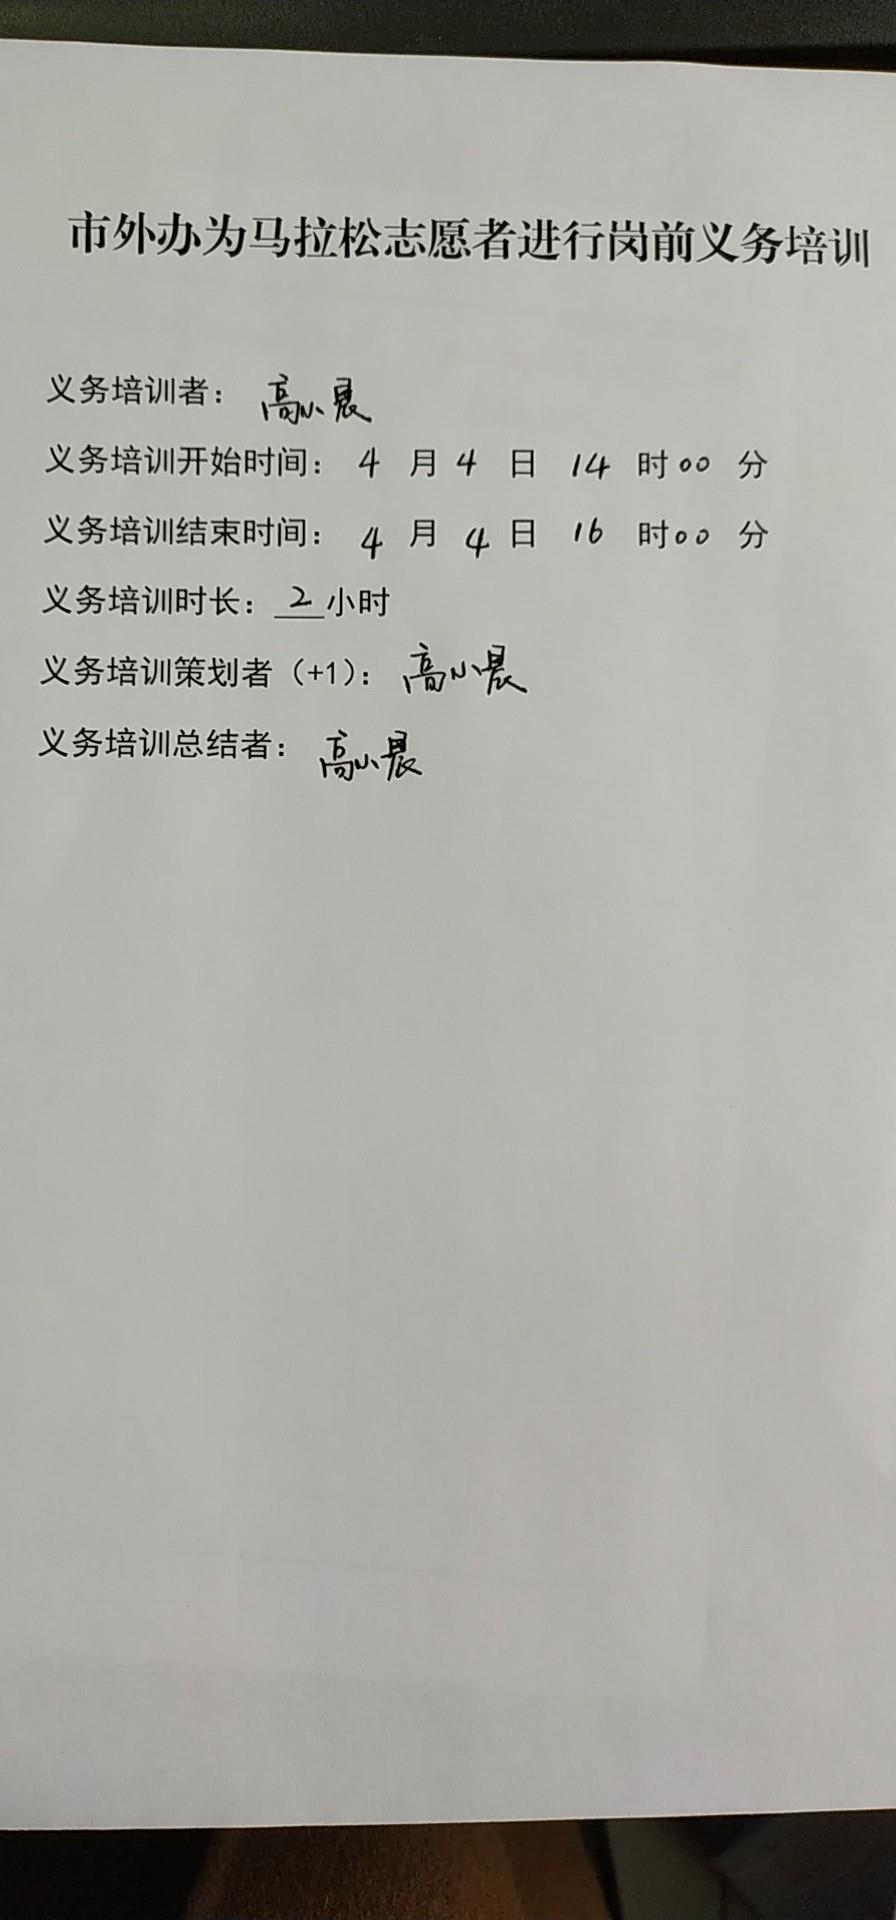 市外办为马拉松志愿者进行岗前义务培训
义务培训者： 高小晨
义务培训开始时间： 4 月 4 日 14 时 00 分
义务培训结束时间： 4 月 4 日 16 时 00 分
义务培训时长： 2 小时
义务培训策划者（+1）： 高小晨
义务培训总结者： 高小晨